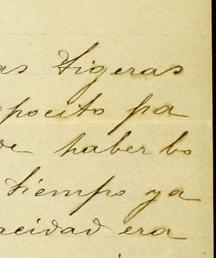 as tigeras
pocito pa
de haber lo
tiempo ya
acidad era